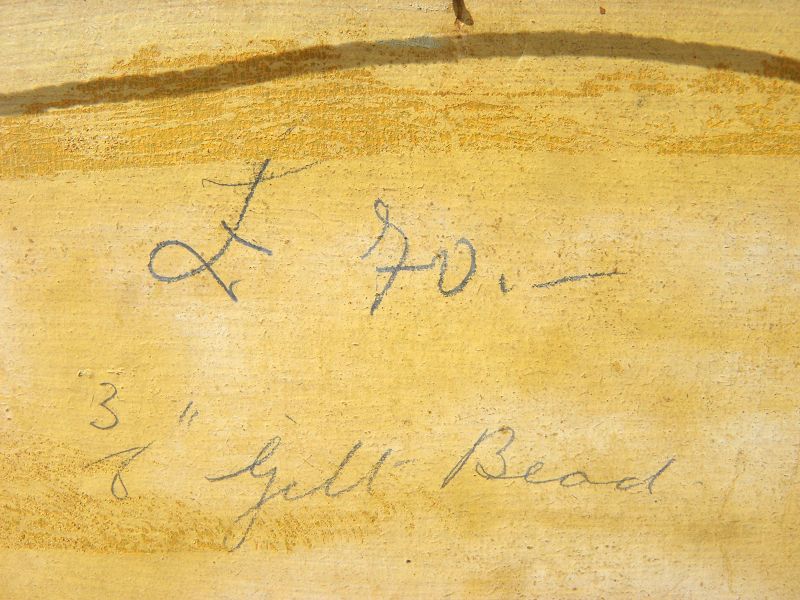 £ 70.—
3/8" Gilt Bead